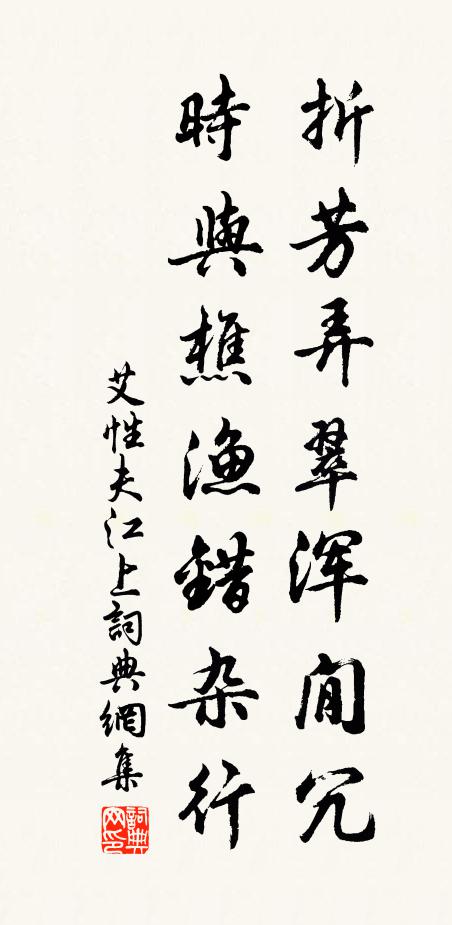 折芳弄翠浑閒冗
時與樵漁錯杂行
艾性夫江上詞典網集
詞典网印